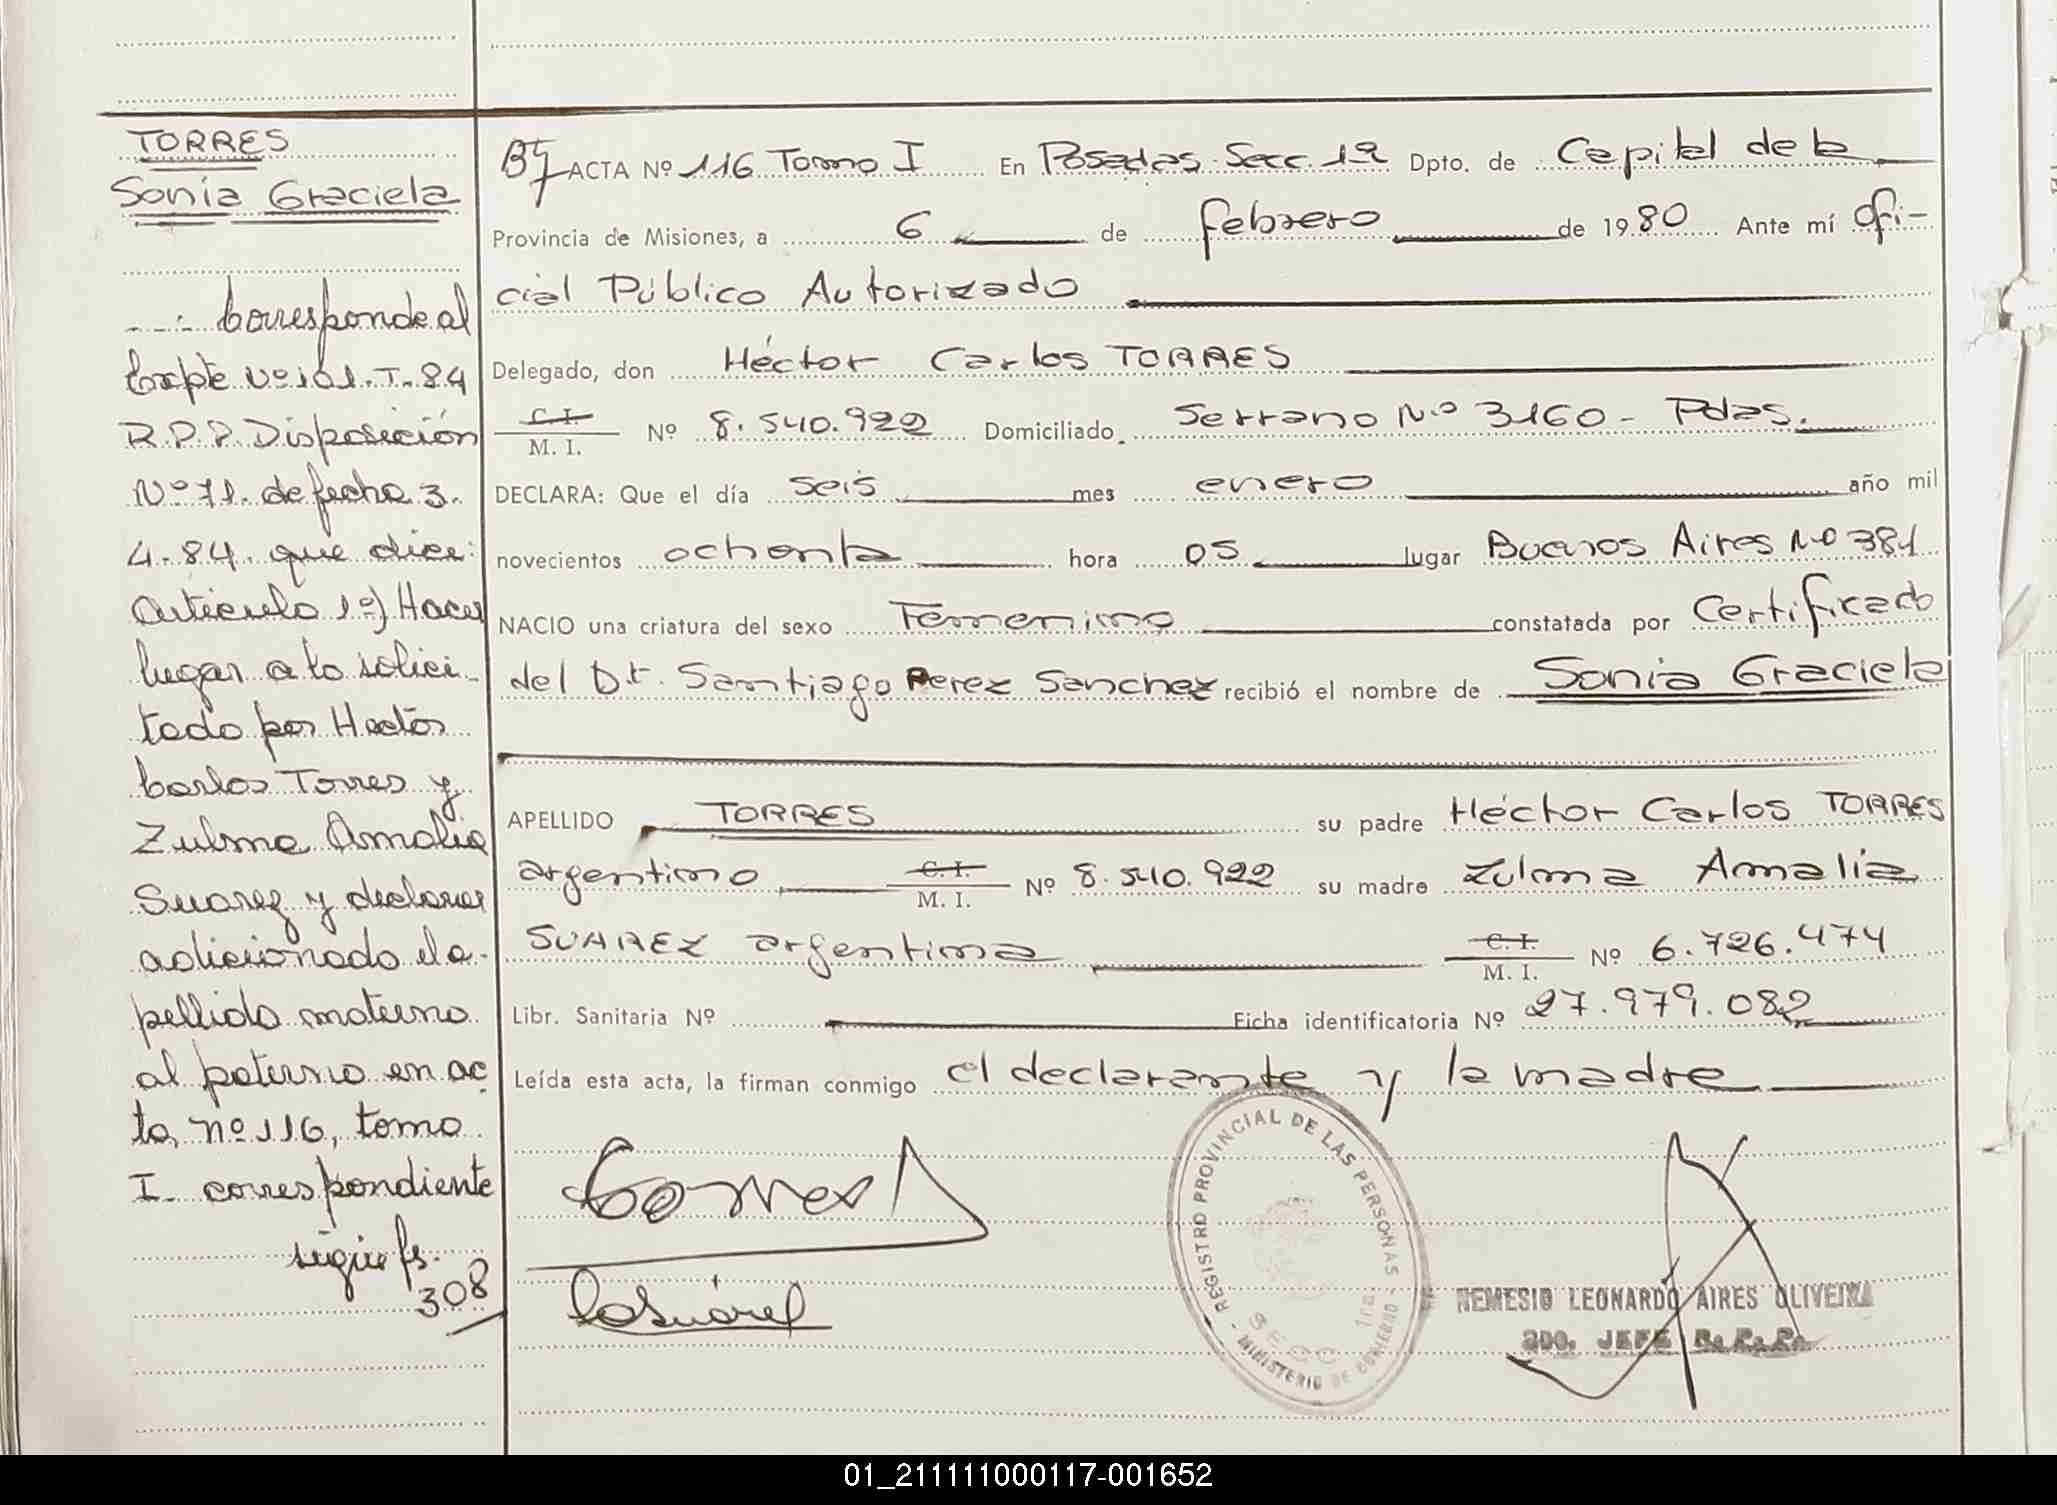 TORRES
Sonia Graciela
Corresponde al
Expte Nº 101.T.84
R.P.P. Disposición
Nº 71. de fecha 3.
4.84. que dice:
Artículo 1º) Hacer
lugar a lo solici-
tado por Hector
Carlos Torres y
Zulma Amalia
Suarez y declarar
adicionado el a-
pellido materno
al paterno en ac
ta, nº 116, tomo
I. correspondiente
sigue fs.
308
ACTA Nº 116 Tomo I En Posadas Secc. 1ª Dpto. de Capital de la
Provincia de Misiones, a 6 de febrero de 1980 Ante mí Ofi-
cial Público Autorizado
Delegado, don Héctor Carlos TORRES
C. I.
M. I. Nº 8.540.922 Domiciliado Serrano Nº 3160 - Pdas.
DECLARA: Que el día seis mes enero año mil
novecientos ochenta hora 05 lugar Buenos Aires Nº 381
NACIO una criatura del sexo Femenino constatada por Certificado
del Dr. Santiago Perez Sanchez recibió el nombre de Sonia Graciela
APELLIDO TORRES su padre Héctor Carlos TORRES
argentino C. I.
M. I. Nº 8.540.922 su madre Zulma Amalia
SUAREZ argentina C. I.
M. I. Nº 6.726.474
Libr. Sanitaria Nº Ficha identificatoria Nº 27.979.082
Leída esta acta, la firman conmigo el declarante y la madre
REGISTRO PROVINCIAL DE LAS PERSONAS
SECC. 1ra.
MINISTERIO DE GOBIERNO
NEMESIO LEONARDO AIRES OLIVEIRA
2DO. JEFE
01_211111000117-001652